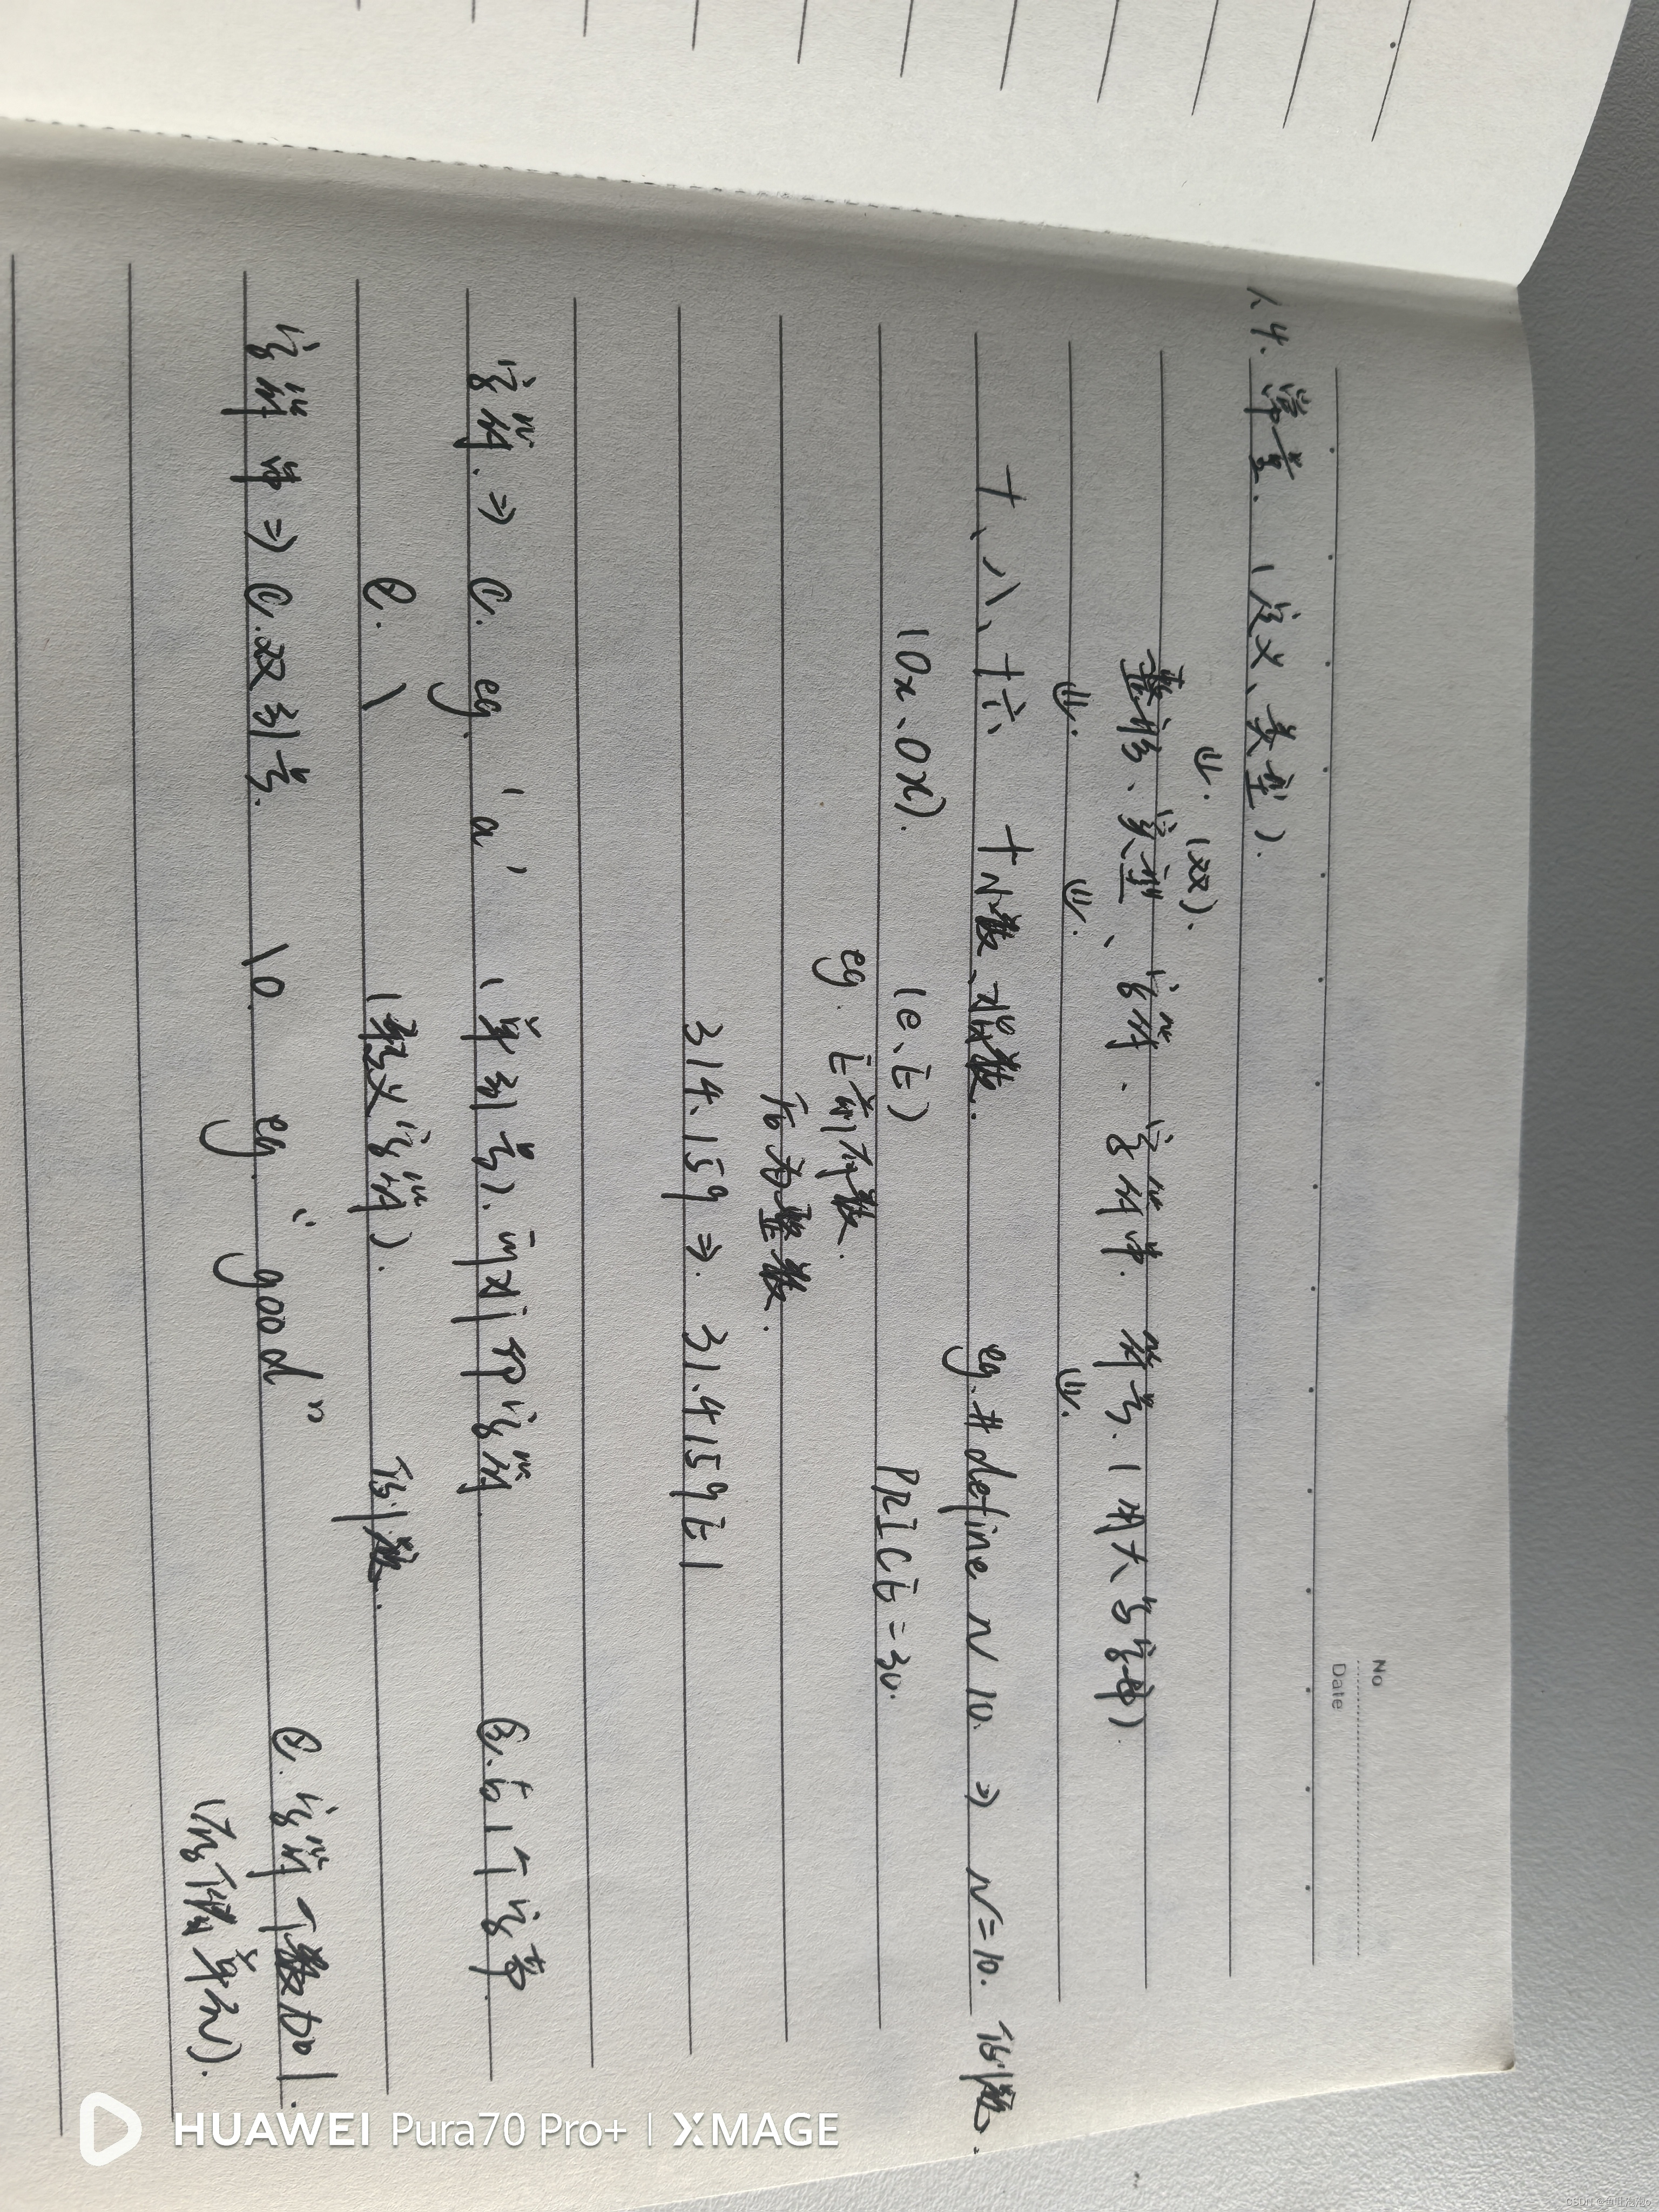 No
Date
4. 常量. (定义、类型).
⇓. (双).
整形、实型、字符. 字符串. 符号. (用大写字母)
⇓. ⇓. ⇓.
十、八、十六 十小数、指数. eg. #define N 10. ⇒ N=10.
(0x、0X). (e、E) PRICE=30.
eg. E前有数.
后为整数.
314.159 ⇒ 31.4159E1
字符. ⇒ ①. eg. 'a' (单引号). 可对 字符 ③. 占1个字节.
②. \ (转义字符).
字符串 ⇒ ①. 双引号. \0. eg. "good" ②. 字符个数加1.
(存储单元).
HUAWEI Pura70 Pro+ | XMAGE